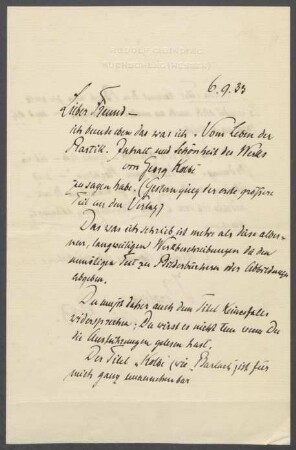 6.9.33
Lieber Freund –
ich beende eben das was ich "Vom Leben der
Plastik. Inhalt und Schönheit des Werks
von Georg Kolbe
zu sagen habe. (Gestern ging der erste größere
Teil an den Verlag)
Das was ich schrieb ist mehr als diese alber-
nen langweiligen Werkbeschreibungen die den
unnötigen Text zu Bilderbüchern oder Abbildungen
abgeben.
Du mußt daher auch dem Titel keinesfalls
widersprechen; Du wirst es nicht tun wenn Du
die Ausführungen gelesen hast.
Der Titel "Kolbe" (wie Barlach) ist für
mich ganz unannehmbar